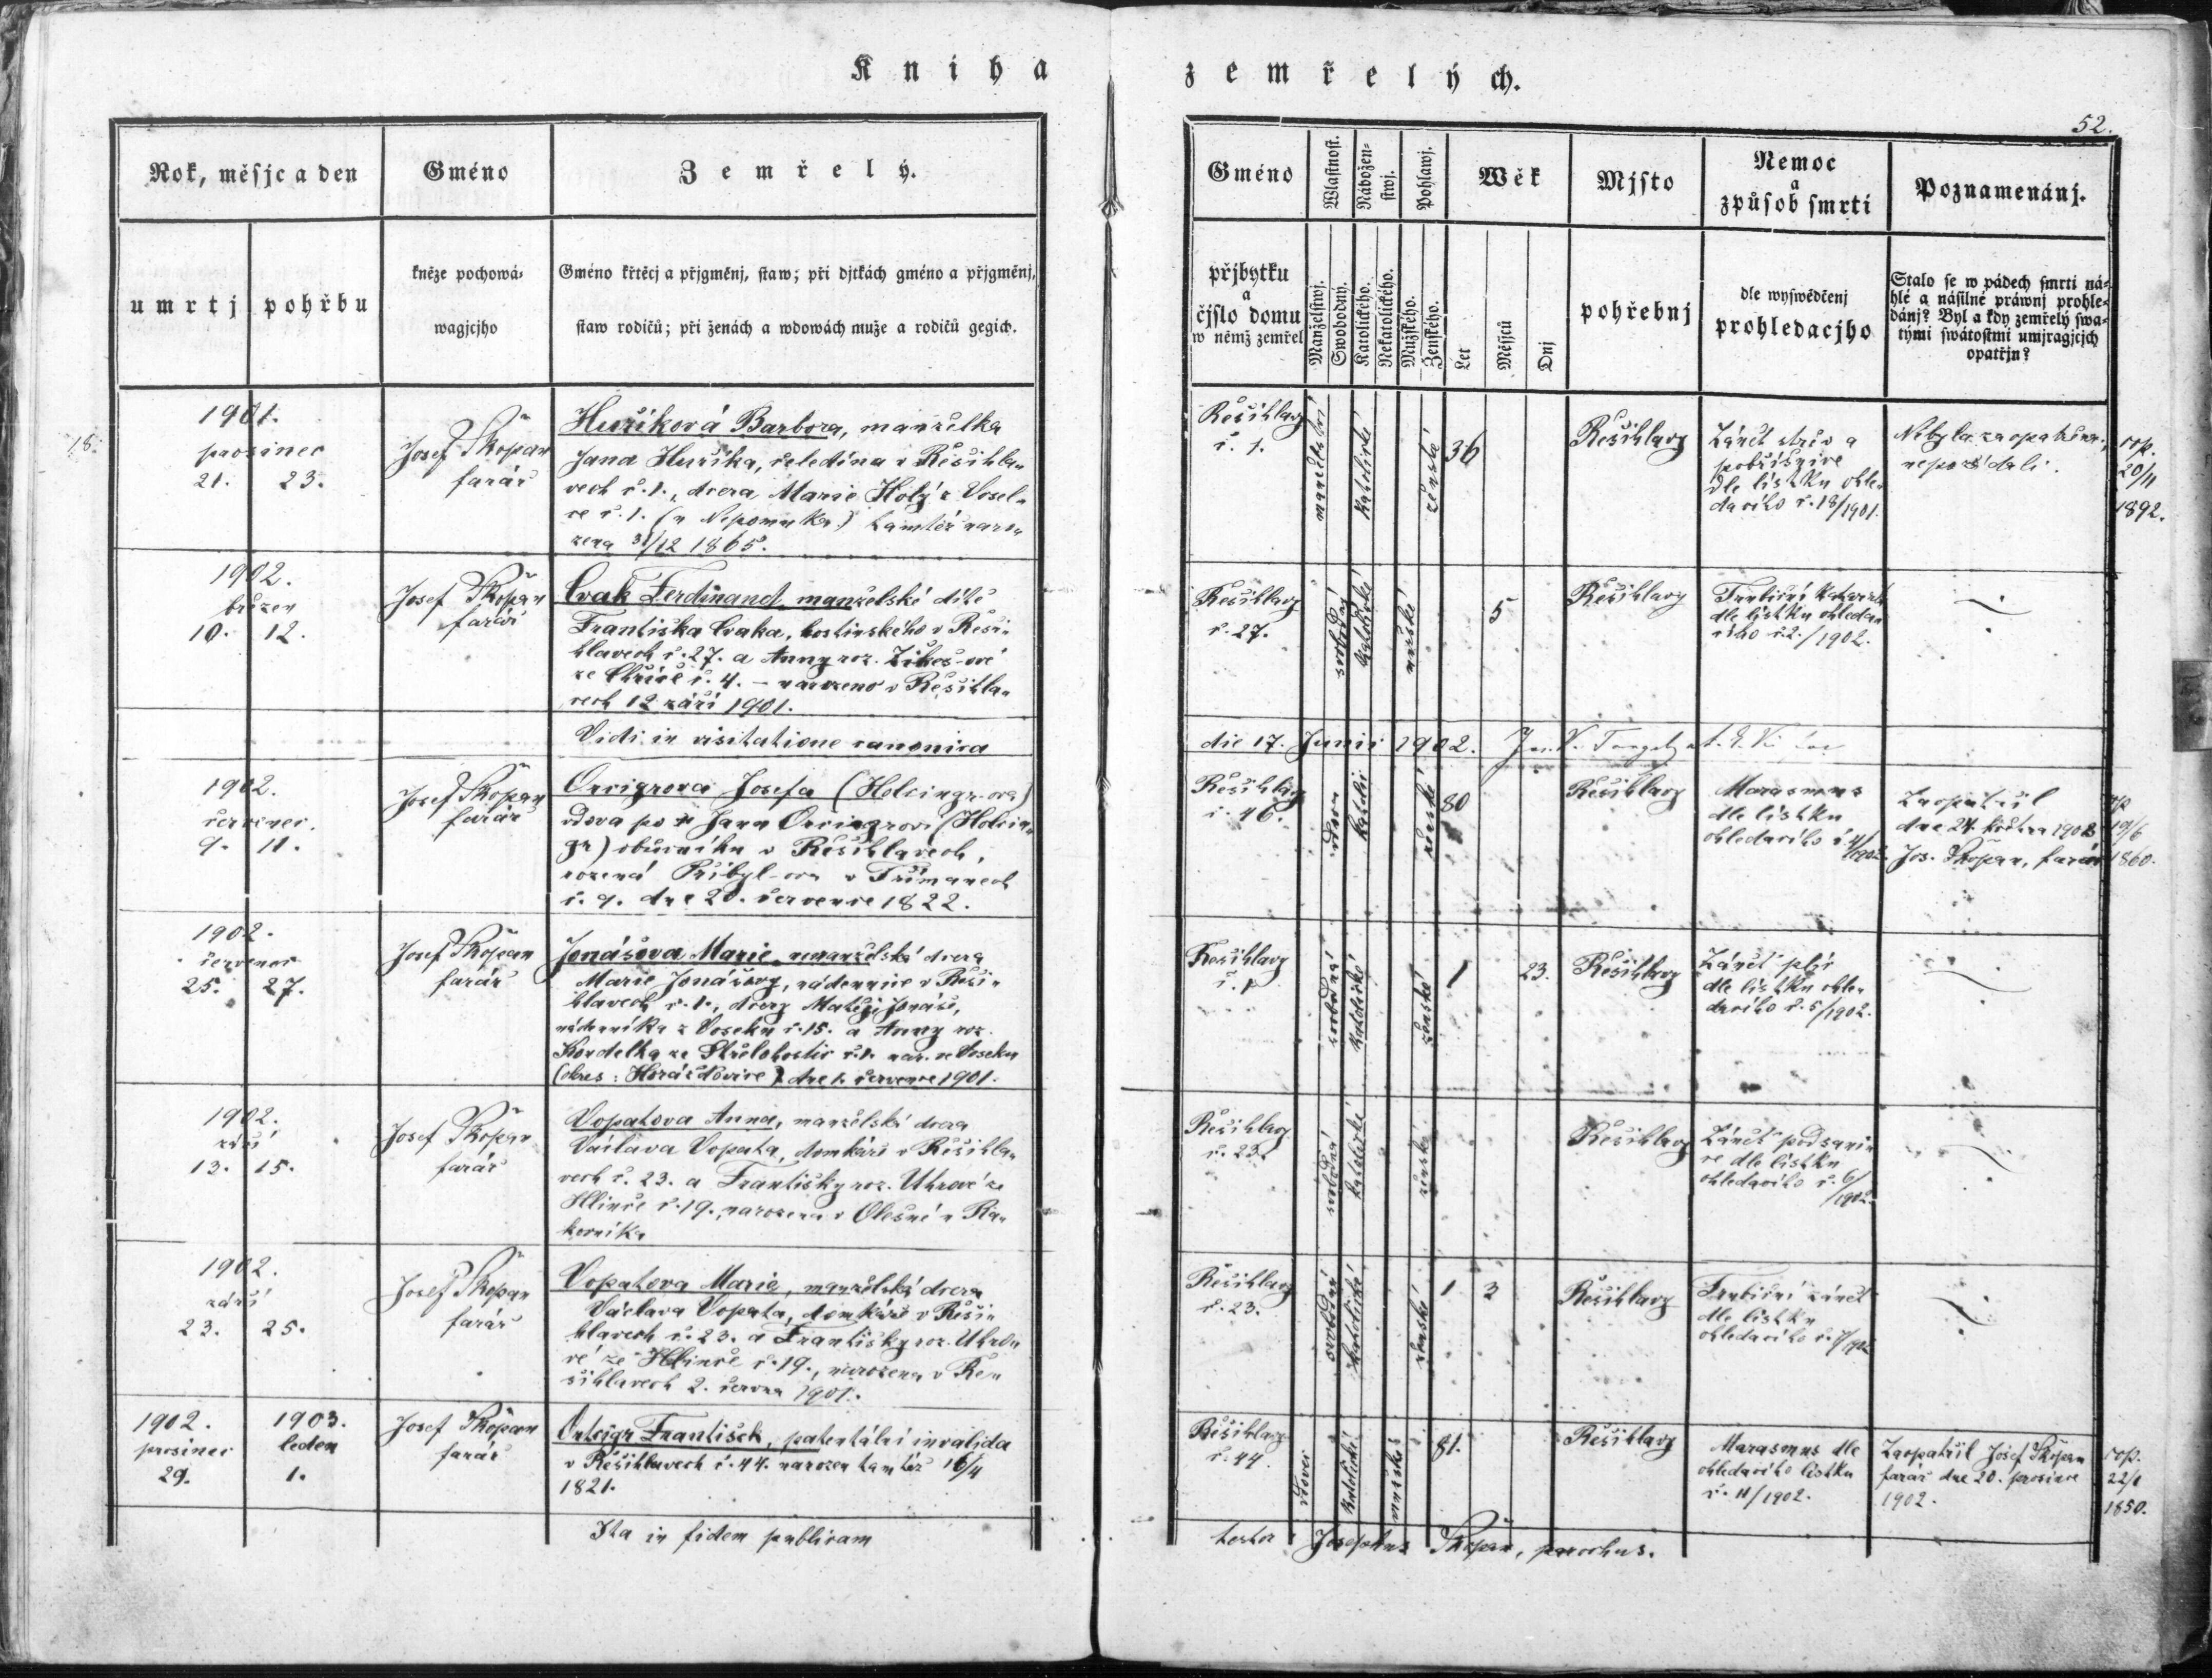 Kniha
zemřelých.
52.
Rok, měsjc a den
Gméno
Zemřelý.
umrtj
pohřbu
kněze pochowá-
wagjcjho
Gméno křtěcj a přjgměnj, staw; při djtkách gméno a přjgměnj,
staw rodičů; při ženách a wdowách muže a rodičů gegich.
Gméno
přjbytku
a
čjslo domu
w němž zemřel
Wlastnost.
Manželstwj.
Swobodný.
Nábožen-
stwj.
Katolického.
Nekatolického.
Pohlawj.
Mužského.
Ženského.
Wěk
Let
Měsjců
Dnj
Mjsto
pohřebnj
Nemoc
a
způsob smrti
dle wyswědčenj
prohledacjho
Poznamenánj.
Stalo se w pádech smrti ná-
hlé a násilné práwnj prohle-
dánj? Byl a kdy zemřelý swa-
tými swátostmi umjragjcjch
opatřjn?
18.
1901.
prosinec
21. 23.
Josef Škopan
farář
Huřiková Barbora, manželka
Jana Huříka, čeledína v Řešihla-
vech č.1., dcera Marie Holý z Vosel-
ce č.1. (u Nepomuka) tamtéž naro-
zena 31/12 1865.
Řešihlavy
č. 1.
manželství
katolické
ženské
36
Řešihlavy
Zánět střev a
pobřišnice
dle lístku ohle-
dacího č.18/1901.
Nebyla zaopatřena,
nepožádali.
cop.
20/11
1892.
1902.
březen
10. 12.
Josef Škopan
farář
Cvak Ferdinand manželské dítě
Františka Cvaka, hostinského v Řeši-
hlavech č.27. a Anny roz. Zikeš-ové
ze Chříče č. 4. – narozeno v Řešihla-
vech 12 září 1901.
Řešihlavy
č. 27.
svobodný
katolické
mužské
5
Řešihlavy
dle lístku ohleda-
cího č.2./1902.
Vidi in visitatione canonica
die 17. Junii 1902.
1902.
červenec.
9. 11.
Josef Škopan
farář
Orcigrova Josefa (Holcingr-ova)
vdova po Janu Orcingrovi (Holcin-
gr) obuvníku v Řešihlavech,
rozená Přibyl-ova v Třímanech
č. 9. dne 20. července 1822.
Řešihlavy
č. 46.
vdova
katolic
ženské
80
Řešihlavy
Marasmus
dle lístku
ohledacího č.4/1902.
Zaopatřil
dne 24. května 1902
Jos. Škopan, farář
cop
19/6
1860.
1902.
červenec
25. 27.
Josef Škopan
farář
Jonášova Marie nemanželská dcera
Marie Jonášovy, nádennice v Řeši-
hlavech č.1., dcery Matěje Jonáše,
nádenníka z Voseku č.15. a Anny roz.
Kordelka ze Střelohostic č.1. nar. ve Voseku
(okres: Horažďovice) dne 1. července 1901.
Řešihlavy
č. 1.
svobodná
katolické
ženské
1
23.
Řešihlavy
Zánět plic
dle lístku ohle-
dacího č.5/1902.
1902.
září
13. 15.
Josef Škopan
farář
Vopatova Anna, manželská dcera
Václava Vopata, domkáře v Řešihla-
vech č. 23. a Františky roz. Uhrové ze
Hlince č.19., narozena v Olešné u Ra-
kovníka
Řešihlavy
č. 23.
svobodná
katolické
ženské
Řešihlavy
dle lístku
ohledacího č.6/1902.
1902.
září
23. 25.
Josef Škopan
farář
Vopatova Marie, manželská dcera
Václava Vopata, domkáře v Řeši-
hlavech č. 23. a Františky roz. Uhro-
vé ze Hlince č.19., narozena v Ře-
šihlavech 2. června 1901.
Řešihlavy
č. 23.
svobodná
katolické
ženské
1
3
Řešihlavy
zánět
dle lístku
ohledacího č.7/1902
1902.
prosinec
29.
1903.
leden
1.
Josef Škopan
farář
Orteigr František, patentální invalida
v Řešihlavech č.44. narozen tamtéž 16/4
1821.
Řešihlavy
č. 44.
vdovec
katolické
mužské
81.
Řešihlavy
Marasmus dle
ohledacího lístku
č. 11/1902.
Zaopatřil Josef Škopan
farář dne 20. prosince
1902.
cop.
22/1
1850.
Ita in fidem publicam
testor Josephus Škopan, parochus.